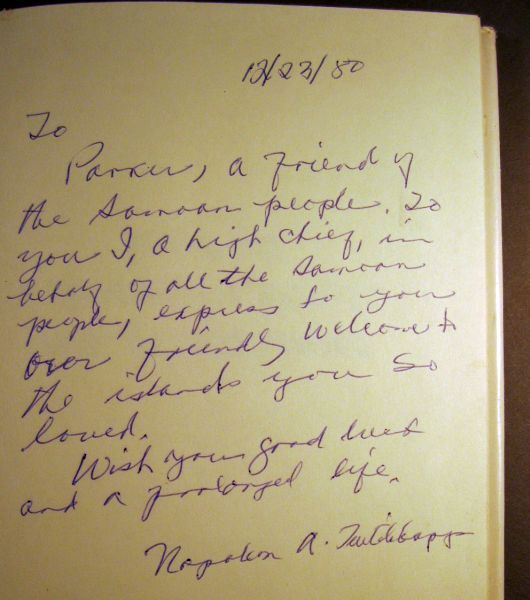 12/23/80
To
Parker, a friend of
the Samoan people. To
you I, a high chief, in
behalf of all the Samoan
people, express to you
our friendly welcome to
the islands you so
loved.
Wish you good luck
and a prolonged life.
Napoleon A.